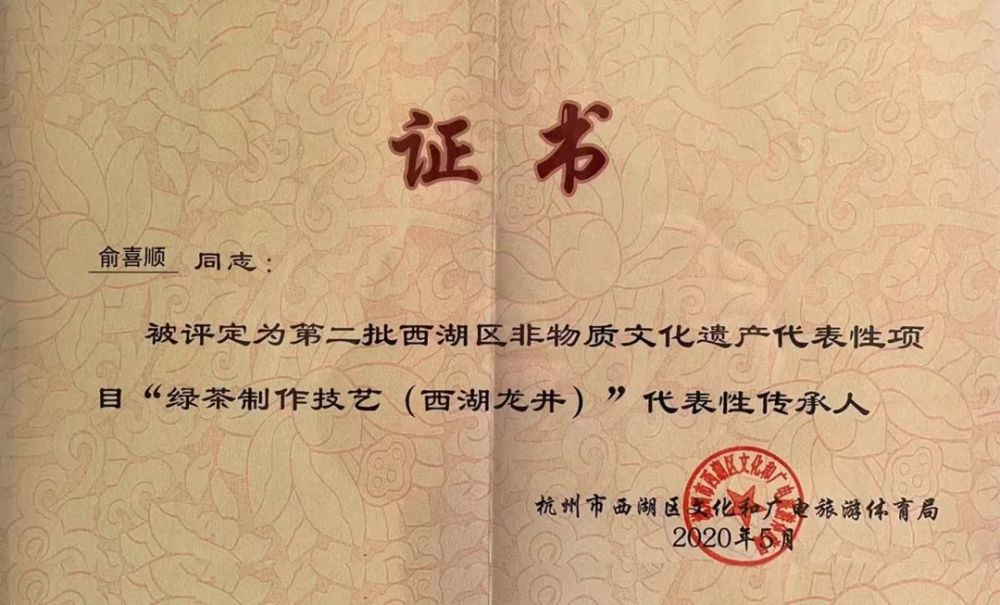 证书
俞喜顺 同志：
被评定为第二批西湖区非物质文化遗产代表性项
目“绿茶制作技艺（西湖龙井）”代表性传承人
杭州市西湖区文化和广电旅游体育局
2020年5月